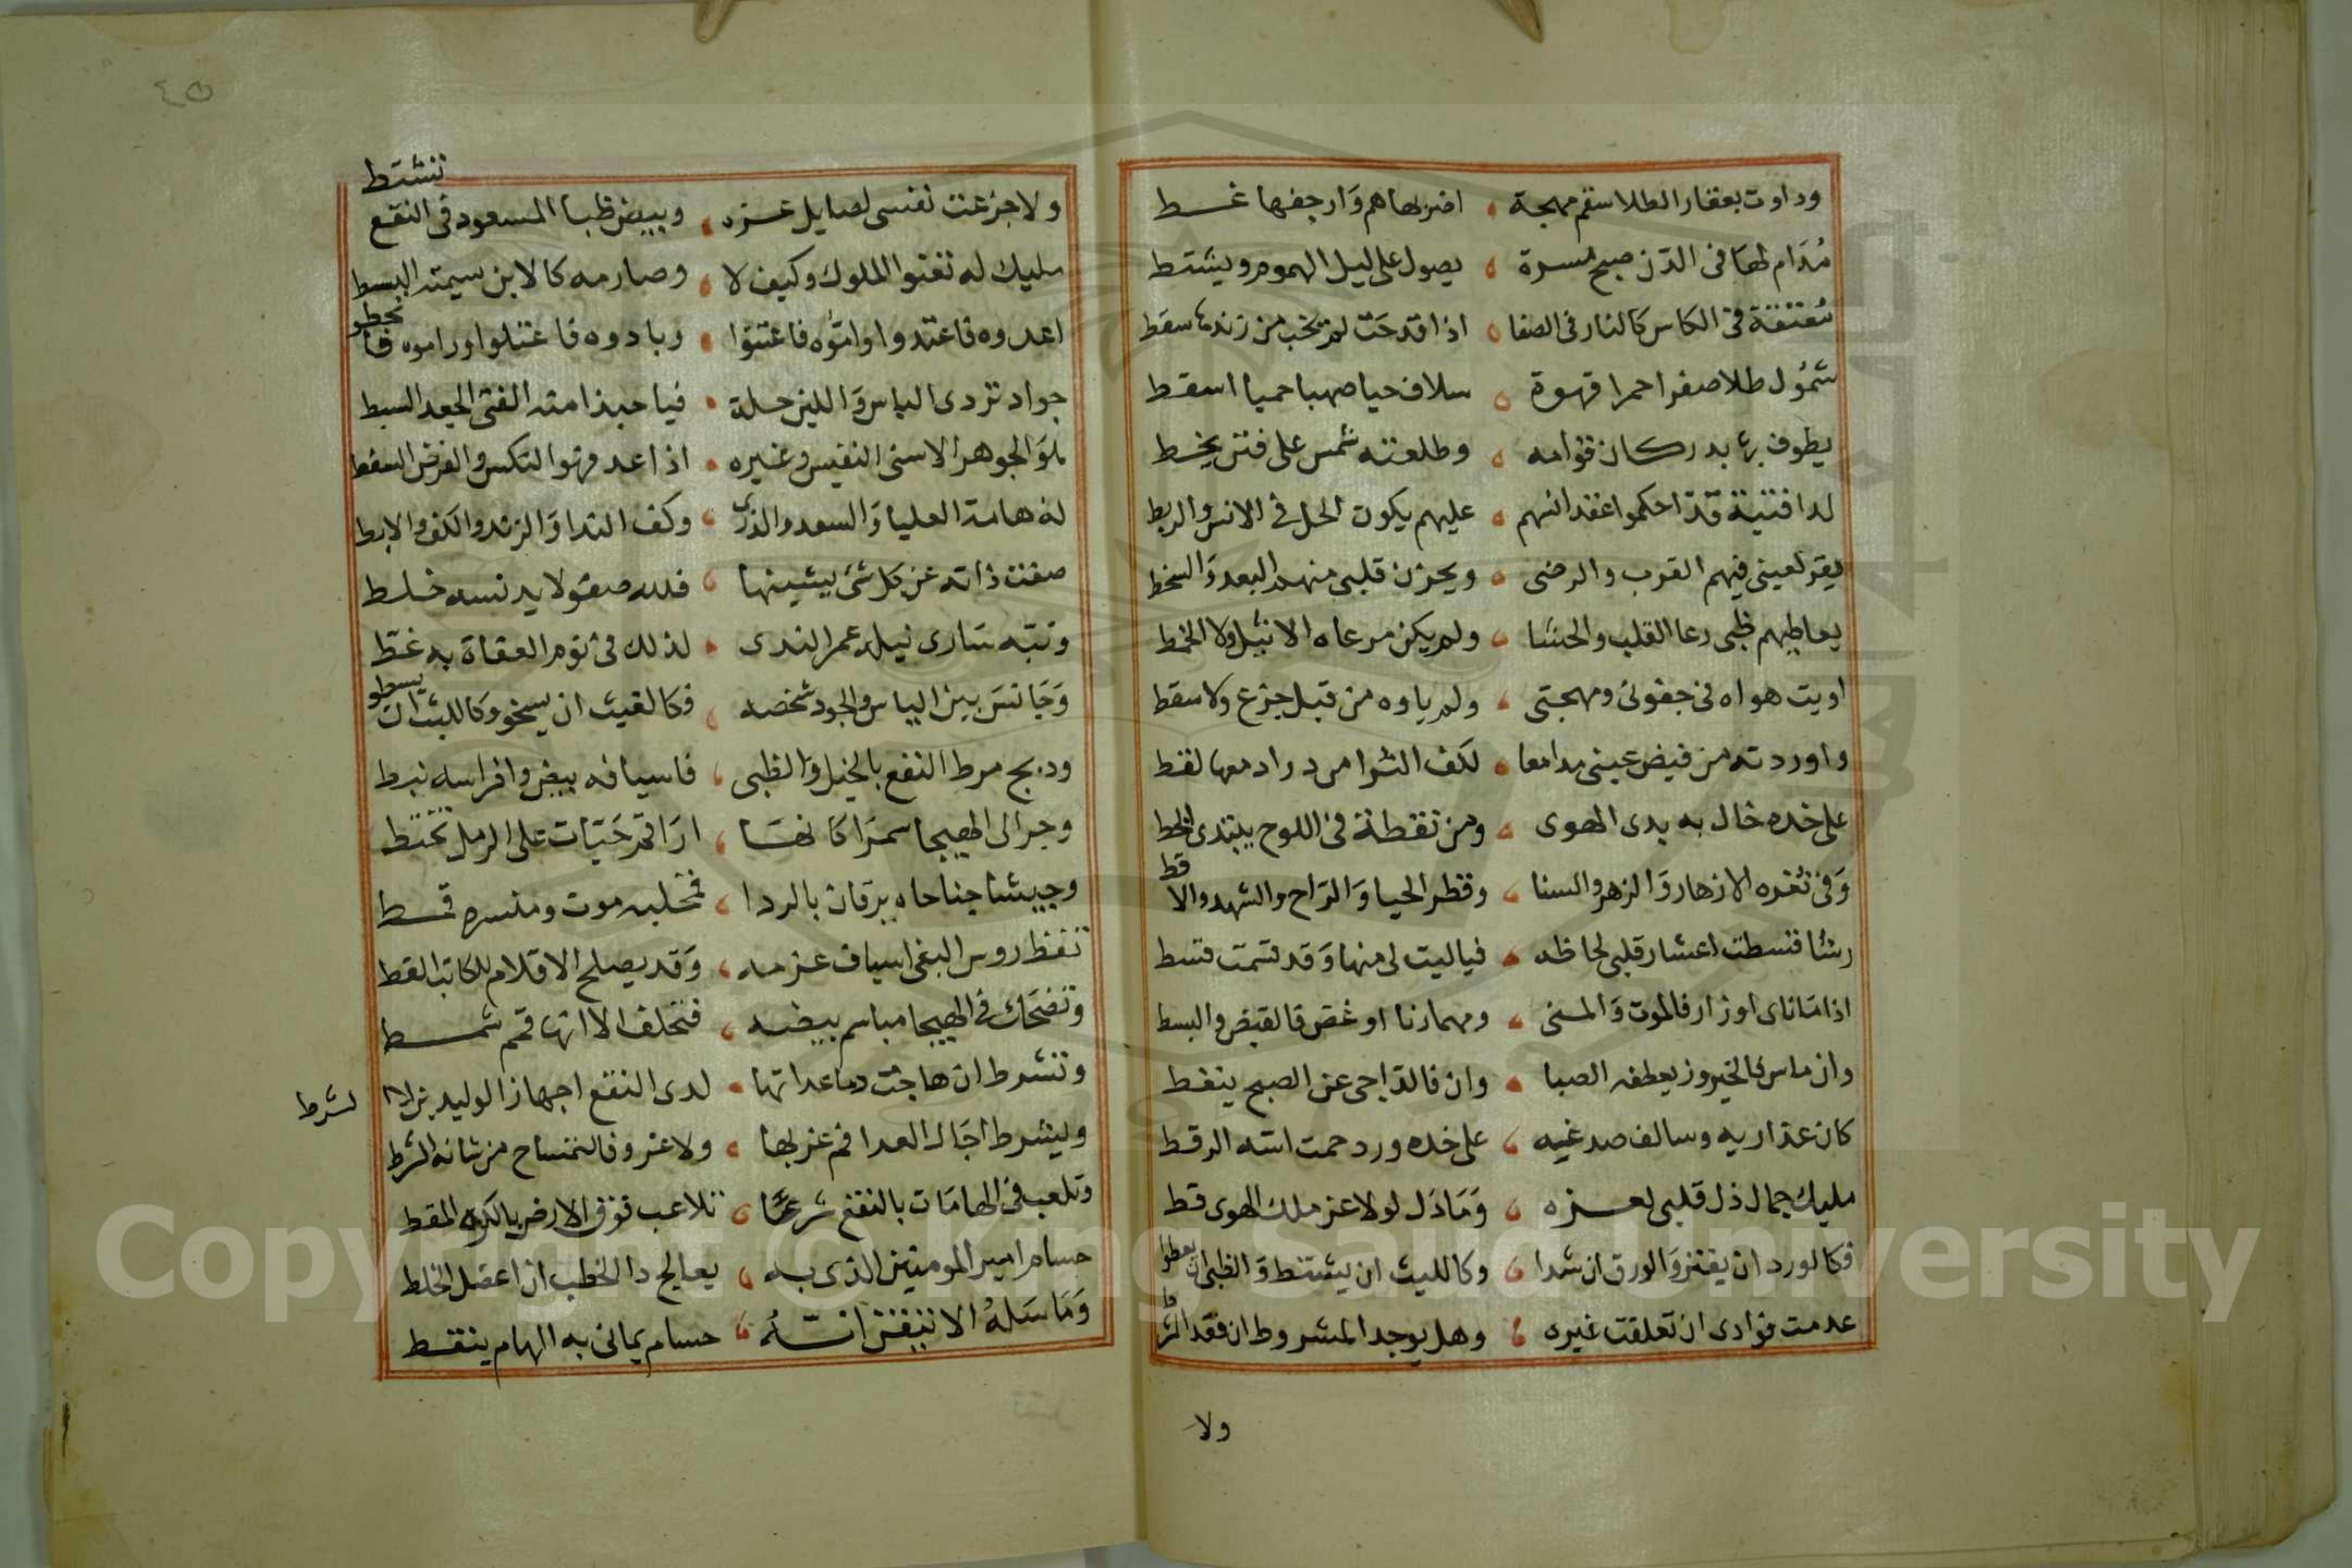 وداوت بعقار الطلا سقم مهجة اضر بها هم وارجفها غسط
مُدَام لها فى الدن صبح مسرة يصول على ليل الهموم ويشتط
مُعتقة فى الكاس كالنار فى الصفا اذا قدحت لم تخب من زندها سقط
شمُول طلا صفرا حمرا قهوة سلاف حيا صهبا حميا اسفط
يطوف بها بدر كان قوامه وطلعته شمس على فنن يخط
لدا فتية قد احكموا عقد انسهم عليهم يكون الحل فى الانس والربط
يقر لعينى فيهم القرب والرضى ويحزن قلبى منهم البعد والسخط
يعاطيهم ظبى رعا القلب والحشا ولم يكن مرعاه الاثيل ولا الخمط
اويت هواه فى جفونى ومهجتى ولم ياوه من قبل جزع ولا سقط
واوردته من فيض عينى مدامعا لكف الثوا من در ادمعها لقط
على خده خال به بدى الهوى ومن نقطة فى اللوح يبتدى الخط
وَفى ثغره الازهار وَالزهر والسنا وقطر الحيا وَالرَاح والشهد والاقط
رشا قسطت اعشار قلبى لحاظه فياليت لى منها وَقد قسمت قسط
اذا مَانا اى اوزار فالموت وَالمنى ومهما رنا او غض فالقبض والبسط
وان ماس كالخيروز يعطفه الصبا وان فالدَاجى عن الصبح ينغط
كان عذاريه وسالف صدغيه على خده ورد حمت اسه الرقط
مليك جمال ذل قلبى لعزه وَمَا ذَل لولا عز ملك الهوى قط
فكالورد ان يفتر وَالورق ان شدا وكالليث ان يشتط وَالظبى ان يعطوا
عدمت فوادى ان تعلقت غيره وهل يوجد المشروط ان فقد الشرط
ولا
٤٥
ولا جزعت نفسى لصايل عزه وبيض ظبا المسعود فى النقع تنشتط
مليك له تعنوا الملوك وكيف لا وصارمه كالابن سيمته البسط
اعدوه فاعتدوا واموه فاعتنوا وبادوه فاعتلوا وراموه فانحطو
جواد تردى الباس وَاللين حلة فيا حبذا منه الفتى الجعد السبط
هو الجوهر الاسنى النفيس وغيره اذا عد فهو النكس والعرض السقط
له هامة العليا وَالسعد والذرى وكف الندا وَالزند والكف والابط
صفت ذاته عن كل شئ يشينها فلله صفو لا يدنسه خلط
ونبه سارى نيله عمر الندى لذلك فى نوم العفاة به غط
وَجَانسَ بين الباس والجود شخصه فكالغيث ان يسخو وكالليث ان يسطو
ودبج مرط النقع بالخيل وَالظبى فاسيافه بيض وافراسه نبط
وجر الى الهيجا سمرَا كانهَا اراقم حَيَّات على الرمل تختط
وجيشا جناحاه يرقان بالردا فمخلبه موت ومنسره قسط
تقط روس البغى اسياف عزمه وَقد يصلح الاقلام للكاتب القط
وتضحك فى الهيجا مباسم بيضه فتحلف الا انها قمم شمط
وتشرط ان هاجت دما عداتها لدى النقع اجهاز الوليد بن لشرط
ويشرط اجَال العدا فم عزبها ولا غرو فالتمساح من شانه الشرط
وتلعب فى الهامَات بالنقع شرعَّا تلاعب فوق الارض بالكره المقط
حسام امير المومنين الذى به يعالج دا الخطب ان اعضل الخلط
وَمَا سَلهُ الا تيقن انَّهُ حسام يمانى به الهام ينقط